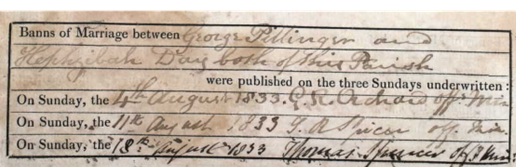 Banns of Marriage between George Pillinger and
Hephzibah Day both of this Parish
were published on the three Sundays underwritten :
On Sunday, the 4th August 1833. G. R. Orchard off. Min
On Sunday, the 11th August 1833 off. Min.
On Sunday, the 18th August 1833 Thomas Spencer off. Min